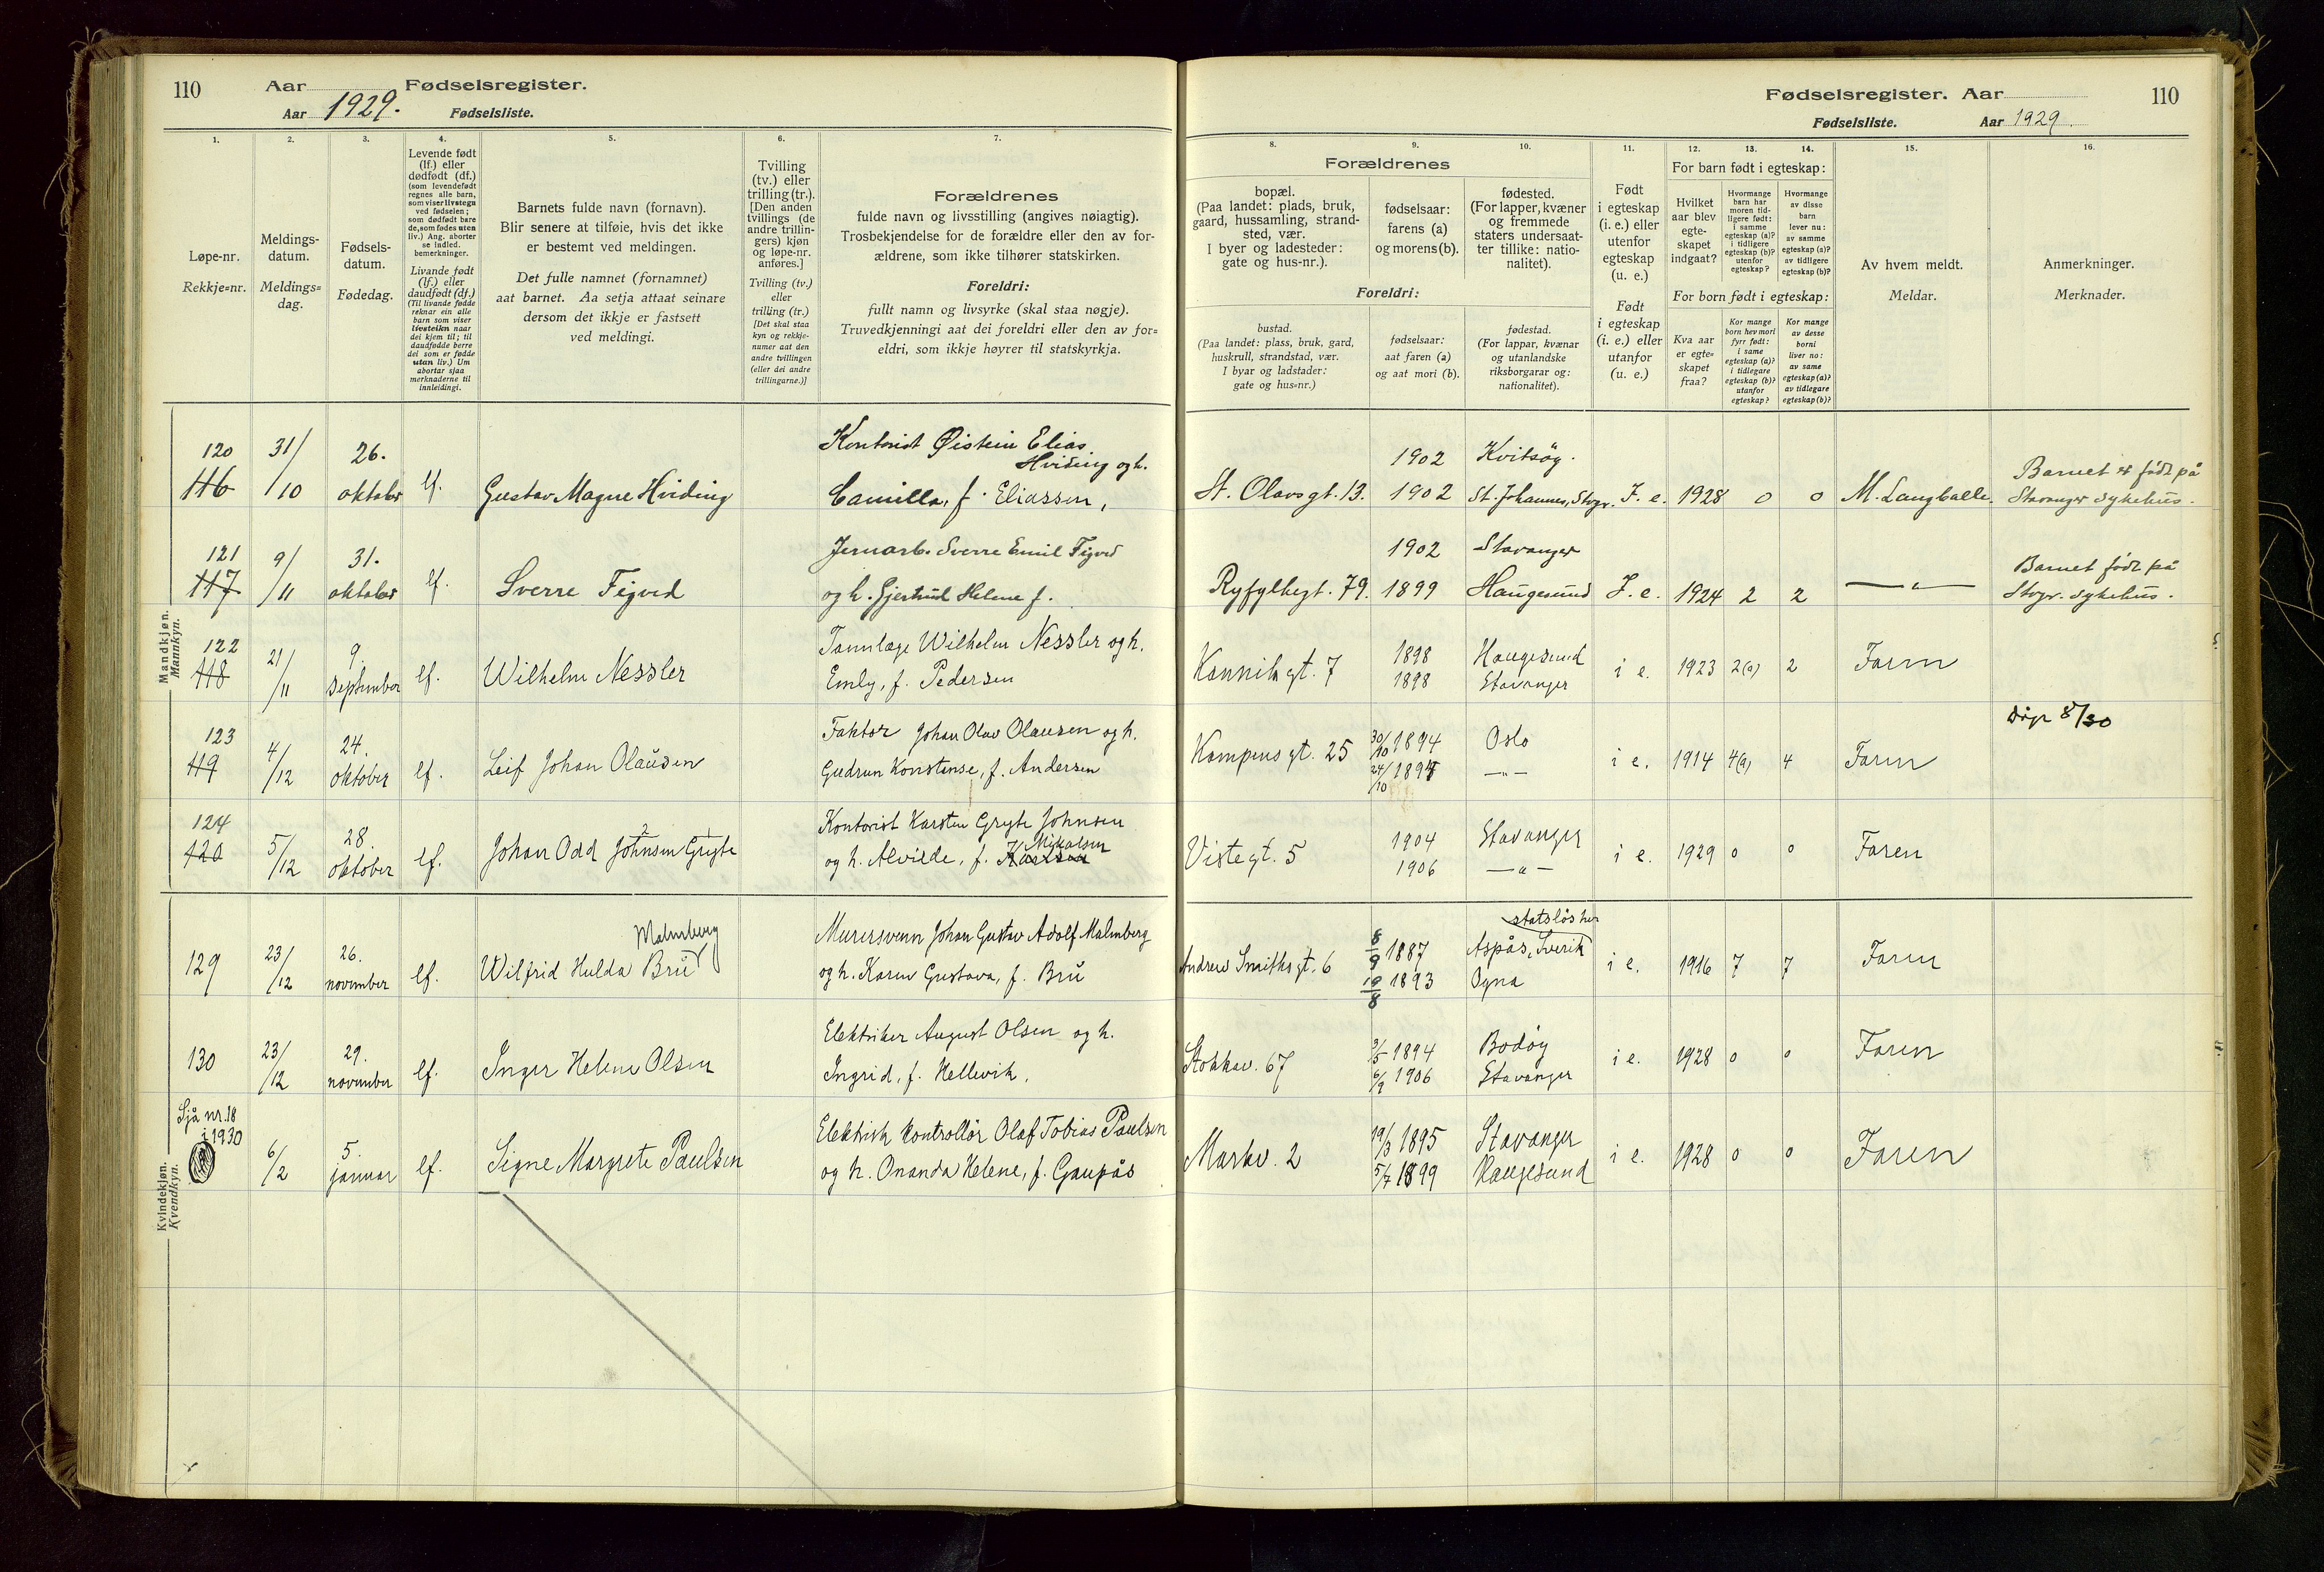 110
Aar Fødselsregister.
Aar 1929. Fødselsliste.
1. 2. 3. 4. 5. 6. 7.
Løpe-nr.
Rekkje=nr.
Meldings-
datum.
Meldings=
dag.
Fødsels-
datum.
Fødedag.
Levende født
(lf.) eller
dødfødt (df.)
(som levendefødt
regnes alle barn,
som viser livstegn
ved fødselen;
som dødfødt bare
de, som fødes uten
liv.) Ang. aborter
se indled.
bemerkninger.
Livande født
(lf.) eller
daudfødt (df.)
(Til livande fødde
reknar ein alle
barn som viser
livsteikn naar
dei kjem til; til
daudfødde berre
dei som er fødde
utan liv.) Um
abortar sjaa
merknaderne til
innleidingi.
Barnets fulde navn (fornavn).
Blir senere at tilføie, hvis det ikke
er bestemt ved meldingen.
Det fulle namnet (fornamnet)
aat barnet. Aa setja attaat seinare
dersom det ikkje er fastsett
ved meldingi.
Tvilling
(tv.) eller
trilling (tr.).
[Den anden
tvillings (de
andre trillin-
gers) kjøn
og løpe-nr.
anføres.]
Tvilling (tv.)
eller
trilling (tr.)
[Det skal staa
kyn og rekkje-
numer aat den
andre tvillingen
(eller dei andre
trillingarne.)]
Forældrenes
fulde navn og livsstilling (angives nøiagtig).
Trosbekjendelse for de forældre eller den av for-
ældrene, som ikke tilhører statskirken.
Foreldri:
fullt namn og livsyrke (skal staa nøgje).
Truvedkjenningi aat dei foreldri eller den av for=
eldri, som ikkje høyrer til statskyrkja.
Mandkjøn.
Mannkyn.
120 31/ 26. Kontorist Øistein Elias
Hviding og h.
116 /10 oktober lf. Gustav Magne Hviding Camilla, f. Eliassen,
121 9/ 31. Jernarb. Sverre Emil Figved
117 /11 oktober lf. Sverre Figved og h. Gjertrud Helene f.
122 21/ 9. Tannlæge Wilhelm Nessler og h.
118 /11 september lf. Wilhelm Nessler Emly, f. Pedersen
123 4/ 24. Faktor Johan Olav Olausen og h.
119 /12 oktober lf. Leif Johan Olausen Gudrun Konstanse, f. Andersen
124 5/ 28. Kontorist Karsten Gryte Johnsen
120 /12 oktober lf. Johan Odd Johnsen Gryte og h. Alvilde, f. Karlsen Mikalsen
Kvindekjøn.
Kvendkyn.
129 23/ 26. Malmberg Murersvenn Johan Gustav Adolf Malmberg
/12 november lf. Wilfrid Hulda Bru og h. Karen Gustava, f. Bru
130 23/ 29. Elektriker August Olsen og h.
/12 november lf. Inger Helene Olsen Ingrid, f. Hellevik.
Sjå nr. 18
i 1930
6/ 5. Elektrisk kontrollør Olaf Tobias Paulsen
/2 januar lf. Signe Margrete Paulsen og h. Ananda Helene, f. Gaupås
Fødselsregister. Aar 110
Fødselsliste. Aar 1929.
8. 9. 10. 11. 12. 13. 14. 15. 16.
Forældrenes
bopæl.
(Paa landet: plads, bruk,
gaard, hussamling, strand-
sted, vær.
I byer og ladesteder:
gate og hus-nr.).
fødselsaar:
farens (a)
og morens (b).
fødested.
(For lapper, kvæner
og fremmede
staters undersaat-
ter tillike: natio-
nalitet).
Foreldri:
bustad.
(Paa landet: plass, bruk, gard,
huskrull, strandstad, vær.
I byar og ladstader:
gate og hus=nr.)
fødselsaar:
aat faren (a)
og aat mori (b).
fødestad.
(For lappar, kvænar
og utanlandske
riksborgarar og:
nationalitet).
Født
i egteskap
(i. e.) eller
utenfor
egteskap
(u. e.)
Født
i egteskap
(i. e.) eller
utanfor
(u. e.)
For barn født i egteskap:
Hvilket
aar blev
egte-
skapet
indgaat?
Hvormange
barn har
moren tid-
ligere født:
i samme
egteskap (a)?
i tidligere
egteskap (b)?
utenfor
egteskap?
Hvormange
av disse
barn
lever nu:
av samme
egteskap (a)?
av tidligere
egteskap (b)?
For born født i egteskap:
Kva aar
er egte=
skapet
fraa?
Kor mange
born hev mori
fyrr født:
i same
egteskap (a)?
i tidlegare
egteskap (b)?
utanfor
egteskap?
Kor mange
av desse
borni
liver no:
av same
egteskap (a)?
av tidlegare
egteskap (b)?
Av hvem meldt.
Meldar.
Anmerkninger.
Merknader.
1902 Kvitsøy. Barnet er født på
St. Olavsgt. 13. 1902 St. Johannes, Stvgr. I. e. 1928 0 0 M. Langballe. Stavanger sykehus.
1902 Stavanger Barnet født på
Ryfylkegt. 79. 1899 Haugesund I. e. 1924 2 2 — " — Stvgr. sykehus.
1898 Haugesund
Kannikgt. 7 1898 Stavanger i e. 1923 2(a) 2 Faren
døpt 8/30
Kampensgt. 25 30/10 1894 Oslo
24/10 1894 — " — i e. 1914 4(a) 4 Faren
1904 Stavanger
Vistegt. 5 1906 — " — i e. 1929 0 0 Faren
statsløs her
8/9 1887 Aspås, Sverik
Andrew Smithsgt. 6 19/8 1893 Ogna i e. 1916 7 7 Faren
1894 Bodøy
Stokkav. 67 6/9 1906 Stavanger i e. 1928 0 0 Faren
19/3 1895 Stavanger
Markv. 2 5/7 1899 Haugesund i e. 1928 0 0 Faren